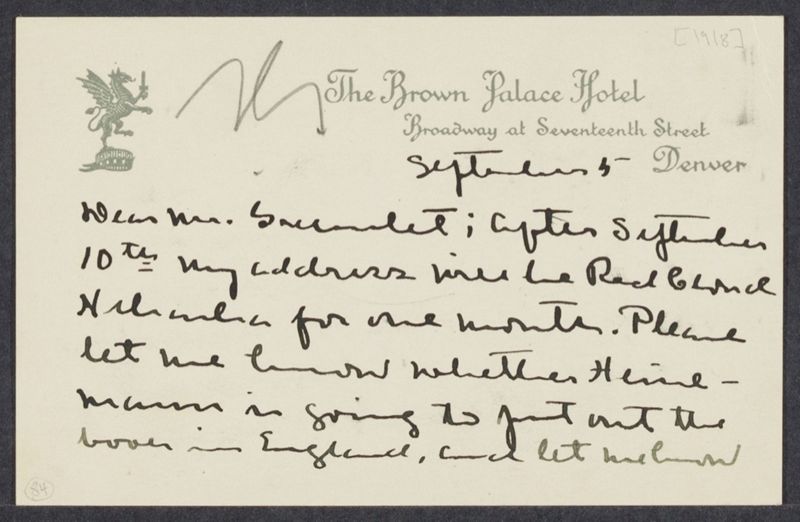 [1918]
The Brown Palace Hotel
Broadway at Seventeenth Street
Denver
September 5
Dear Mr. Greenslet; After September
10th my address will be Red Cloud
Nebraska for one month. Please
let me know whether Heine-
mann is going to put out the
book in England, and let me know
84